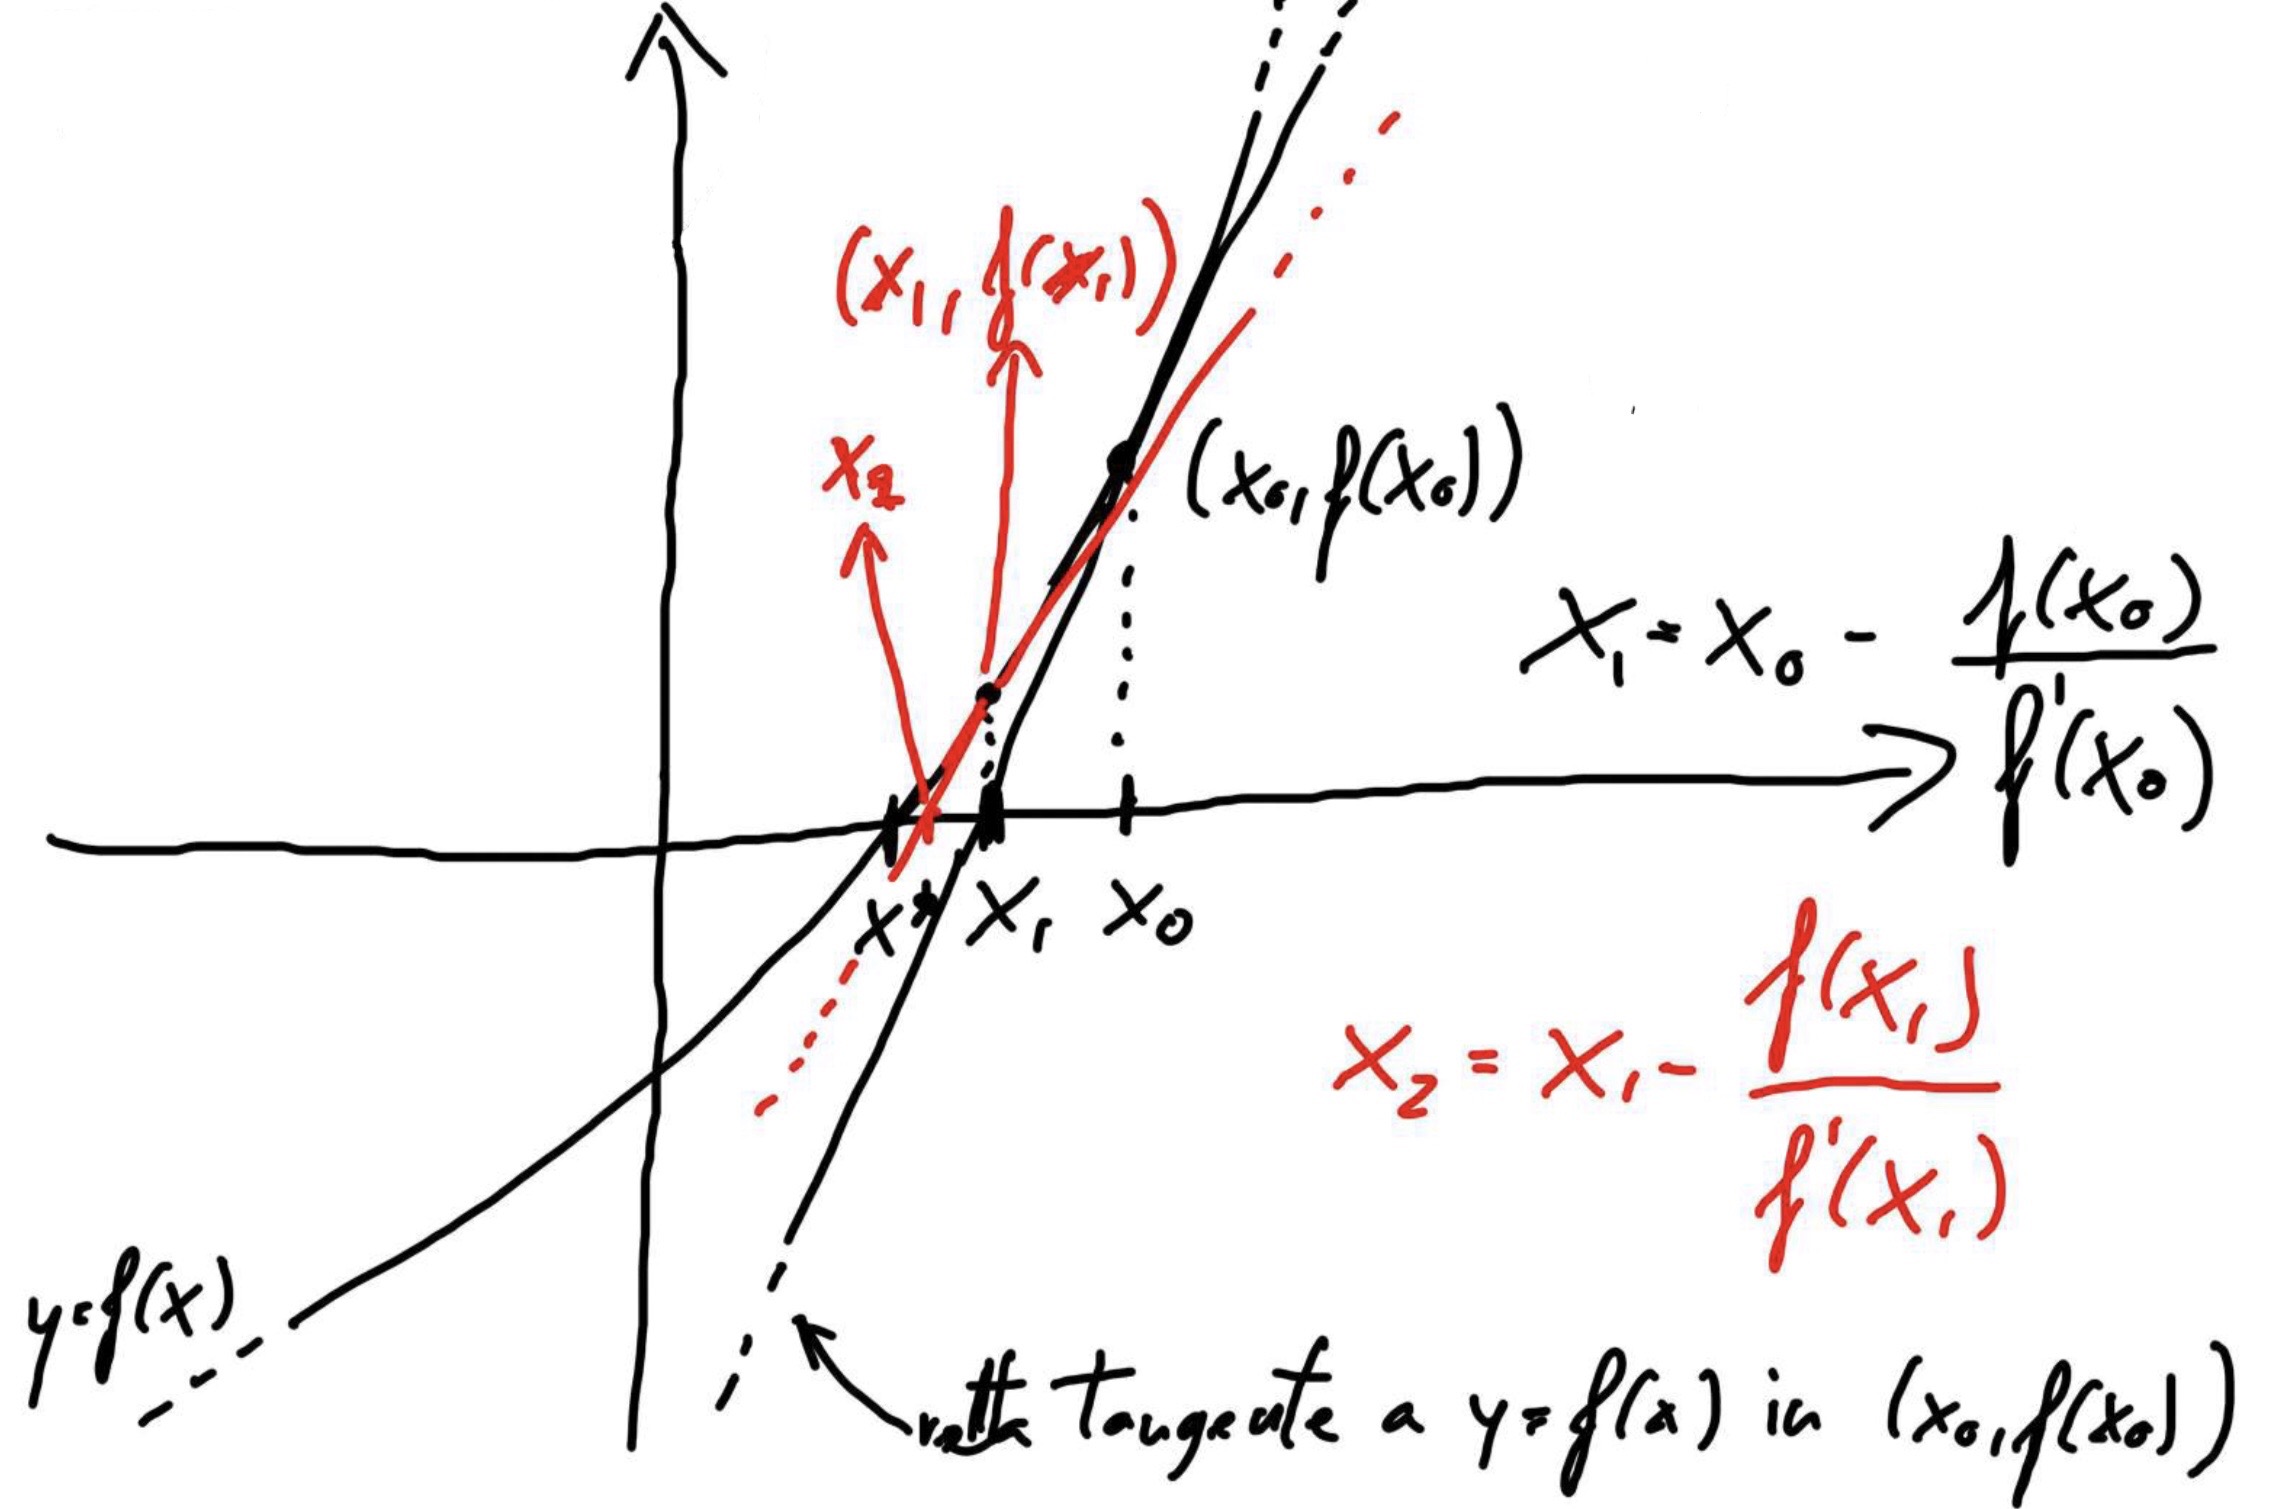 (x₁, f(x₁))
x₂
(x₀, f(x₀))
x₁ = x₀ - f(x₀) / f'(x₀)
x* x₁ x₀
x₂ = x₁ - f(x₁) / f'(x₁)
y=f(x)
retta tangente a y=f(x) in (x₀, f(x₀))